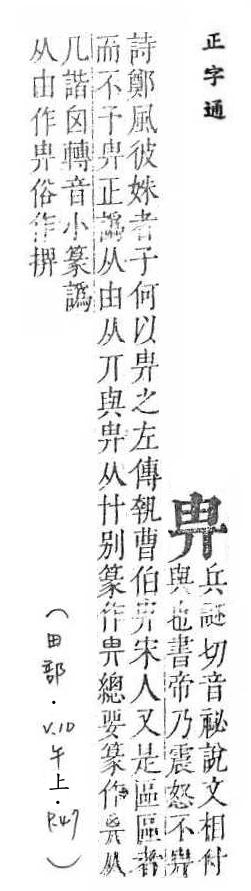 正字通
畀
兵謎切音祕說文相付
與也書帝乃震怒不畀
詩鄭風彼姝者子何以畀之左傳執曹伯畀宋人又是區區者
而不予畀正譌从由从丌與畁从廾别篆作畀總要篆作从
几諧囟轉音小篆譌
从由作畀俗作
（田部・V.10午上・P.47）